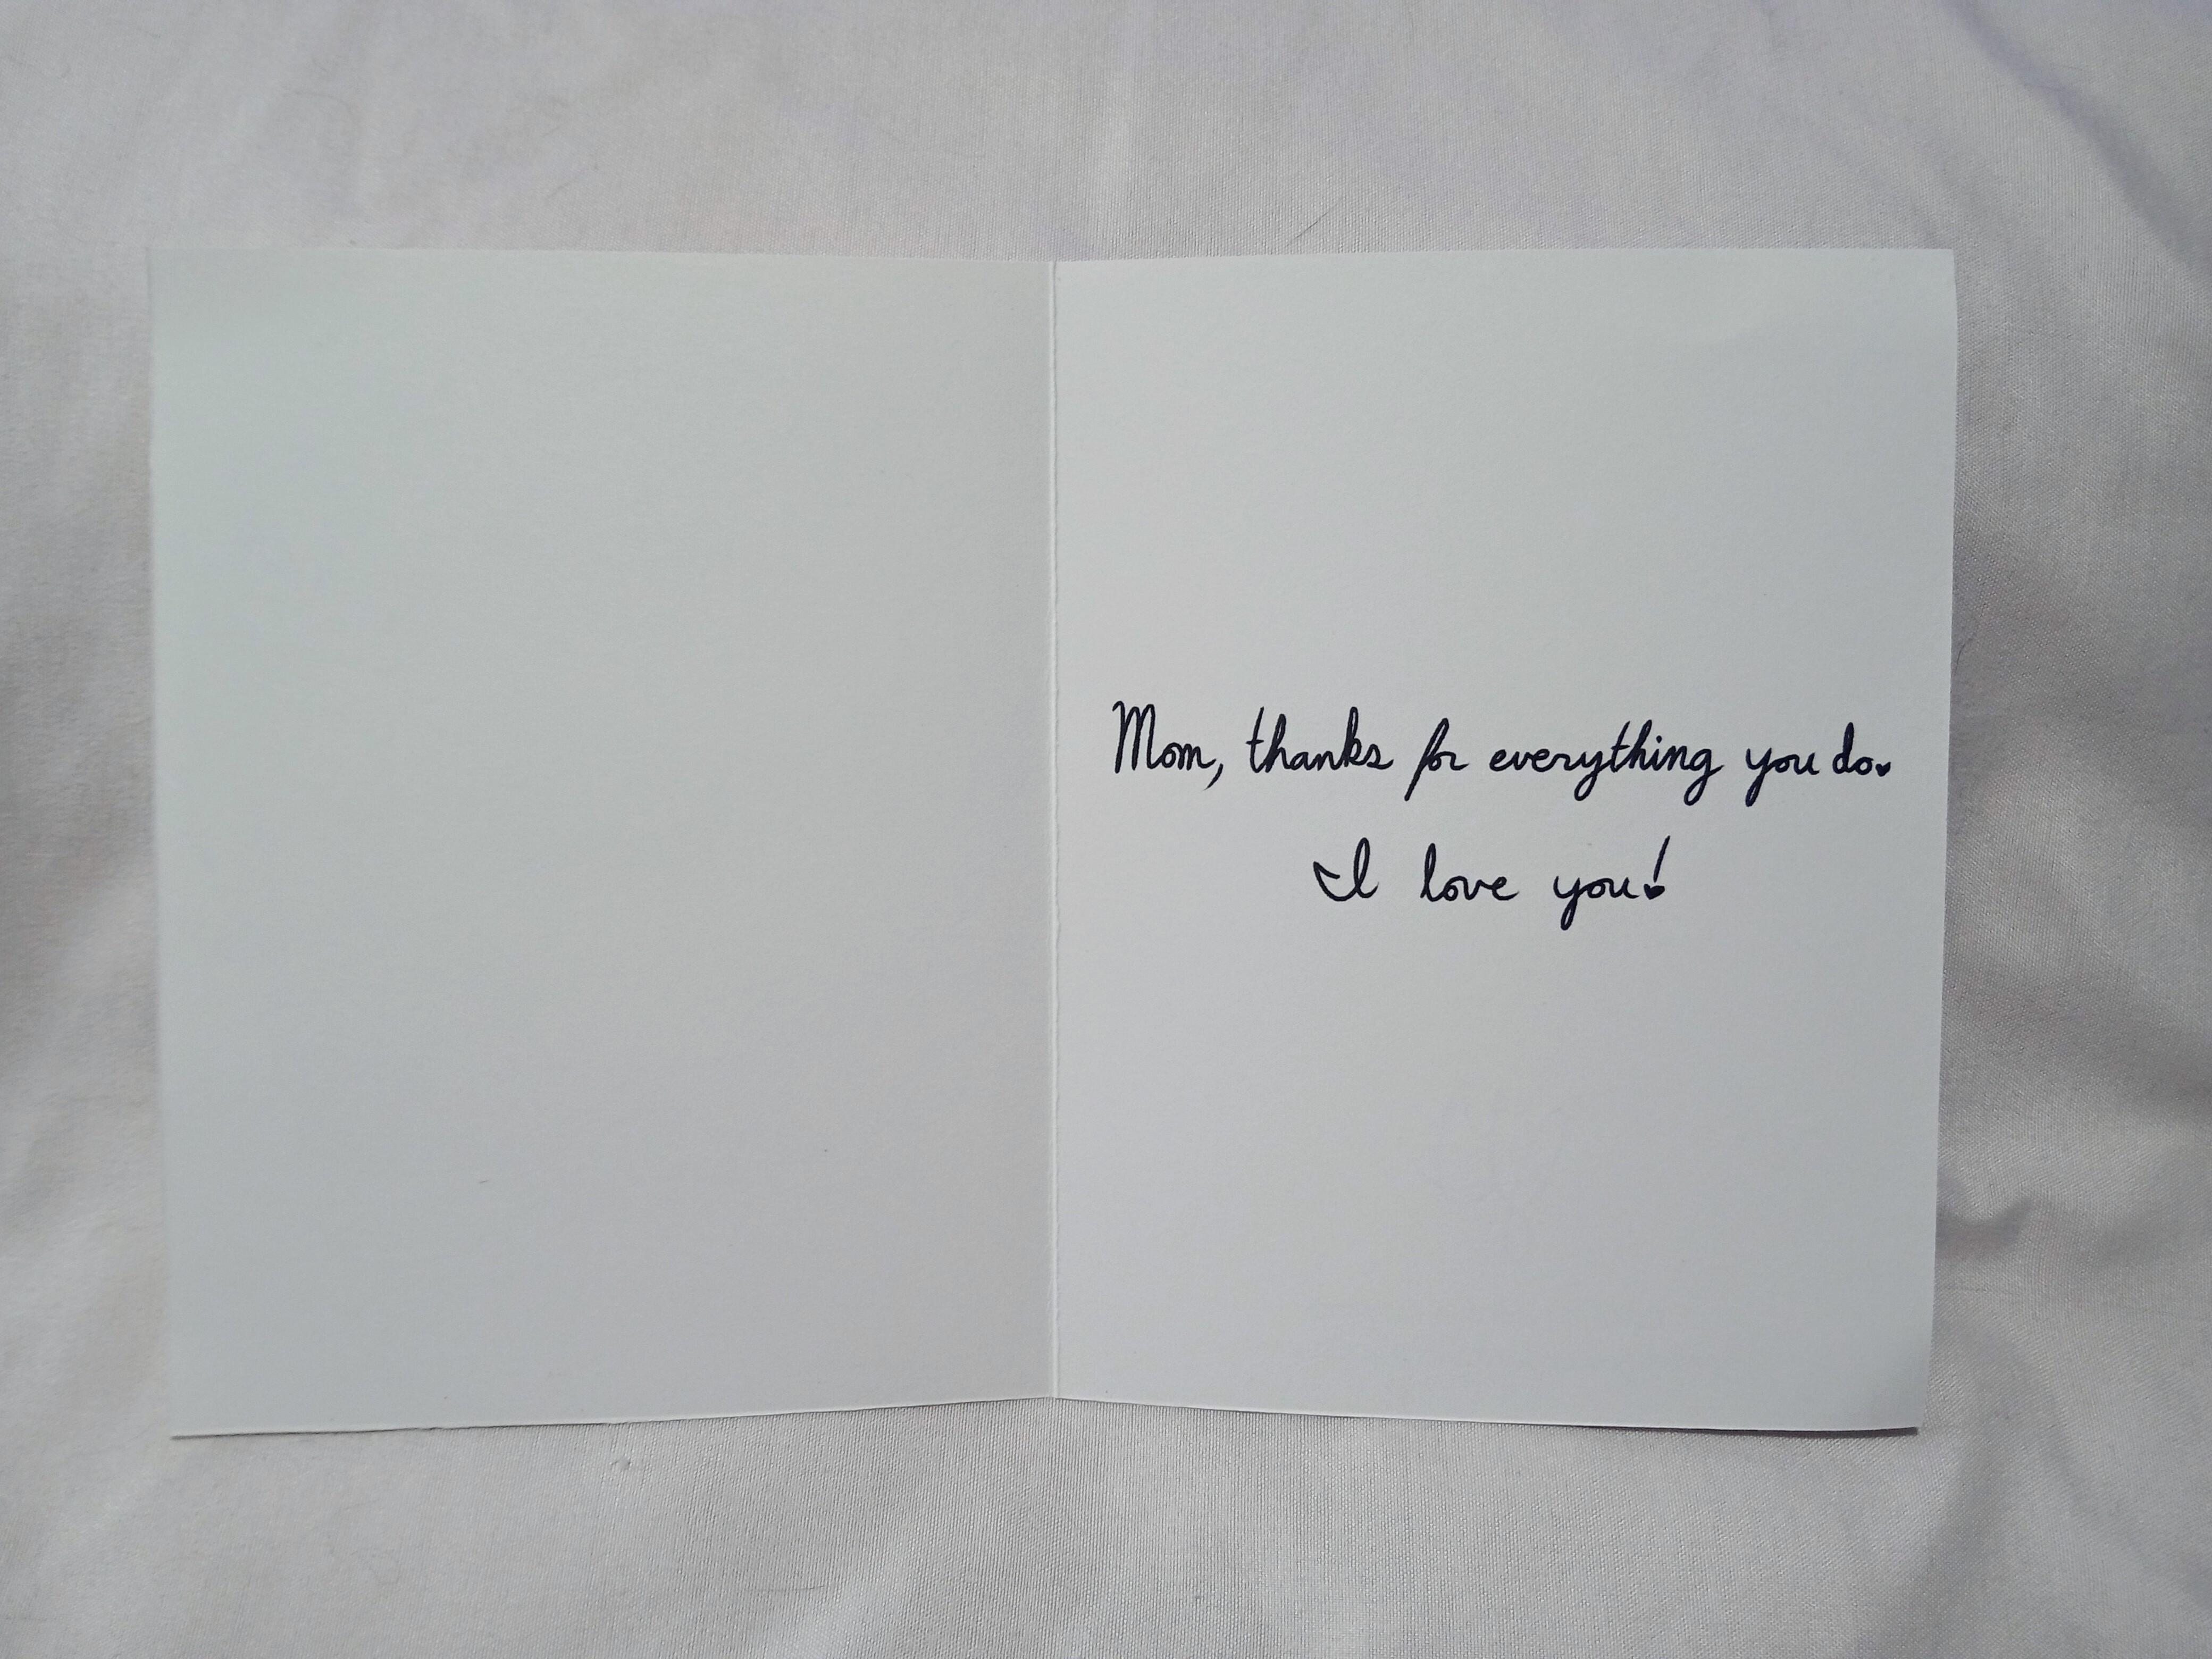 Mom, thanks for everything you do.
I love you!